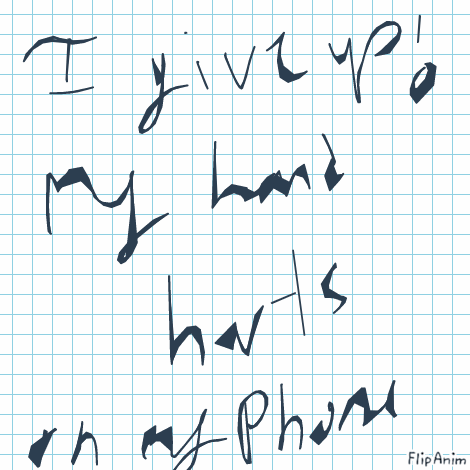 I give up!
my hand
hurts
on my Phone
FlipAnim